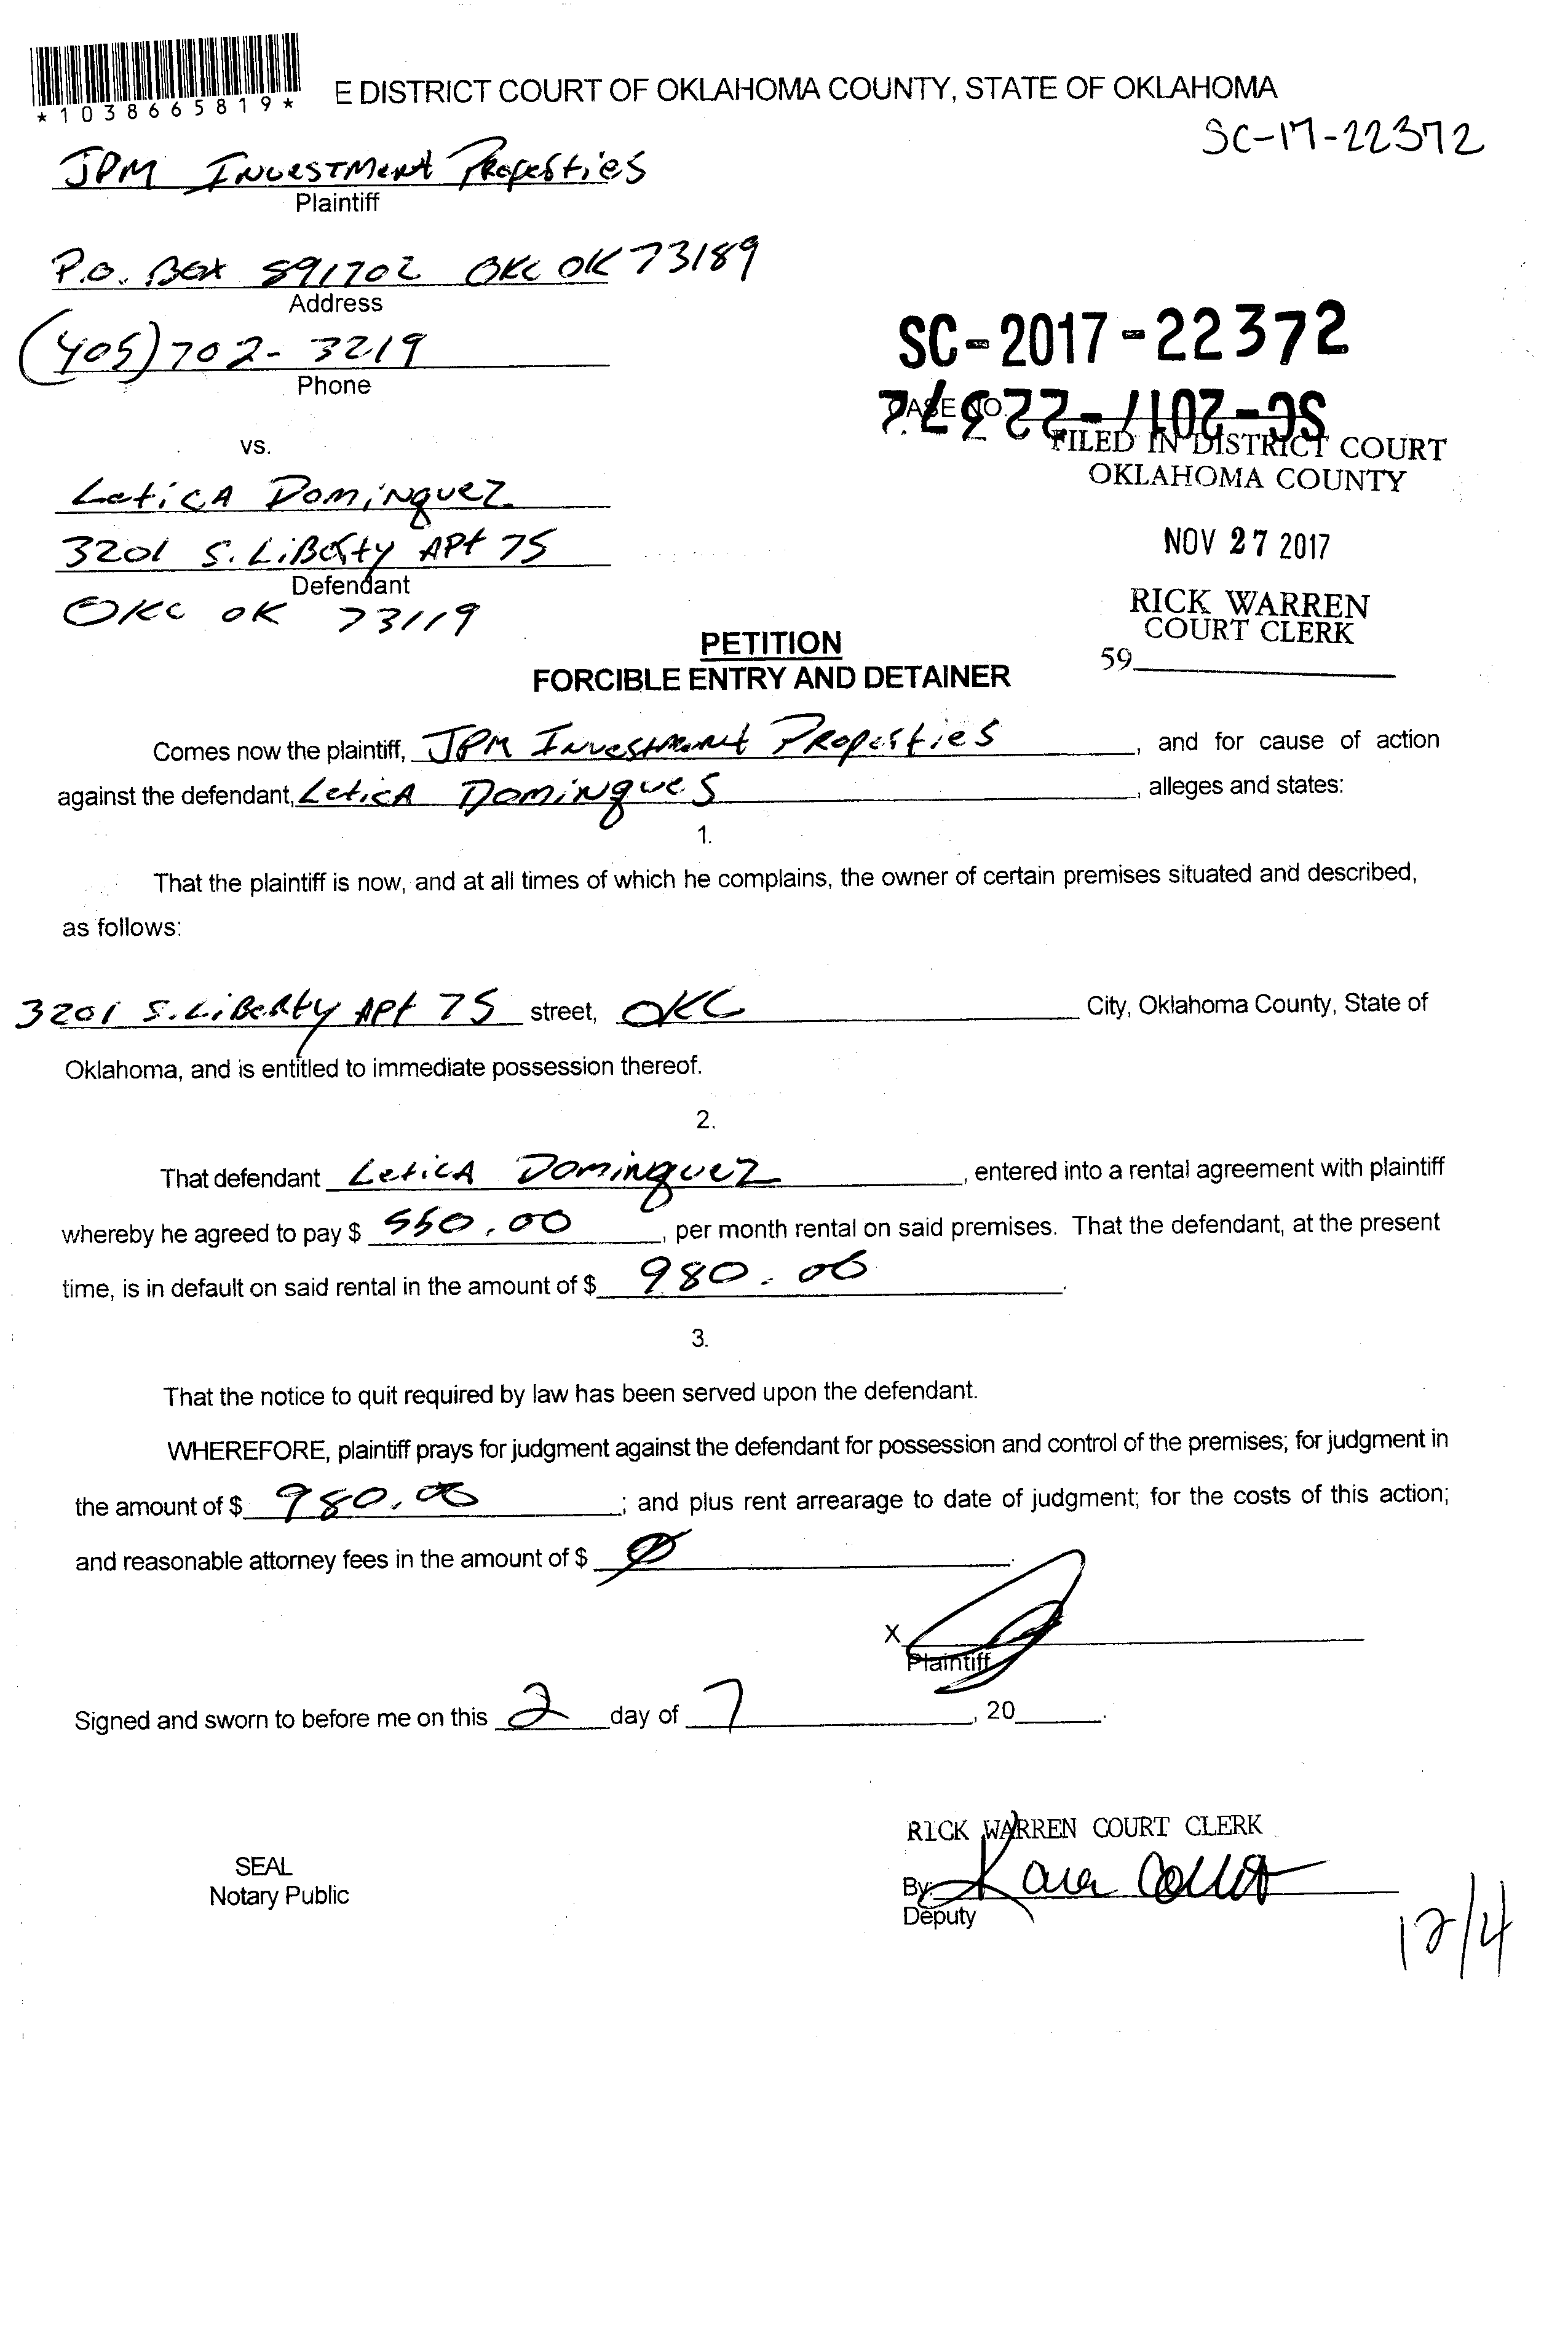 *1038665819*
E DISTRICT COURT OF OKLAHOMA COUNTY, STATE OF OKLAHOMA
SC-17-22372
JPM Investment Properties
Plaintiff
P.O. Box 891702 OKC OK 73189
Address
(405) 702-3219
Phone
SC-2017-22372
CASE NO.
SC-2017-22372
vs.
FILED IN DISTRICT COURT
OKLAHOMA COUNTY
Letica Dominquez
3201 S. Liberty Apt 75
NOV 27 2017
Defendant
OKC OK 73119
RICK WARREN
COURT CLERK
59
PETITION
FORCIBLE ENTRY AND DETAINER
Comes now the plaintiff, JPM Investment Properties, and for cause of action
against the defendant, Letica Domingues, alleges and states:
1.
That the plaintiff is now, and at all times of which he complains, the owner of certain premises situated and described,
as follows:
3201 S. Liberty Apt 75 street, OKC City, Oklahoma County, State of
Oklahoma, and is entitled to immediate possession thereof.
2.
That defendant Letica Dominquez, entered into a rental agreement with plaintiff
whereby he agreed to pay $ 550.00, per month rental on said premises. That the defendant, at the present
time, is in default on said rental in the amount of $ 980.00.
3.
That the notice to quit required by law has been served upon the defendant.
WHEREFORE, plaintiff prays for judgment against the defendant for possession and control of the premises; for judgment in
the amount of $ 980.00; and plus rent arrearage to date of judgment; for the costs of this action;
and reasonable attorney fees in the amount of $ Ø.
X
Plaintiff
Signed and sworn to before me on this 2 day of 7, 20.
RICK WARREN COURT CLERK
SEAL
Notary Public
By:
Deputy
12/4